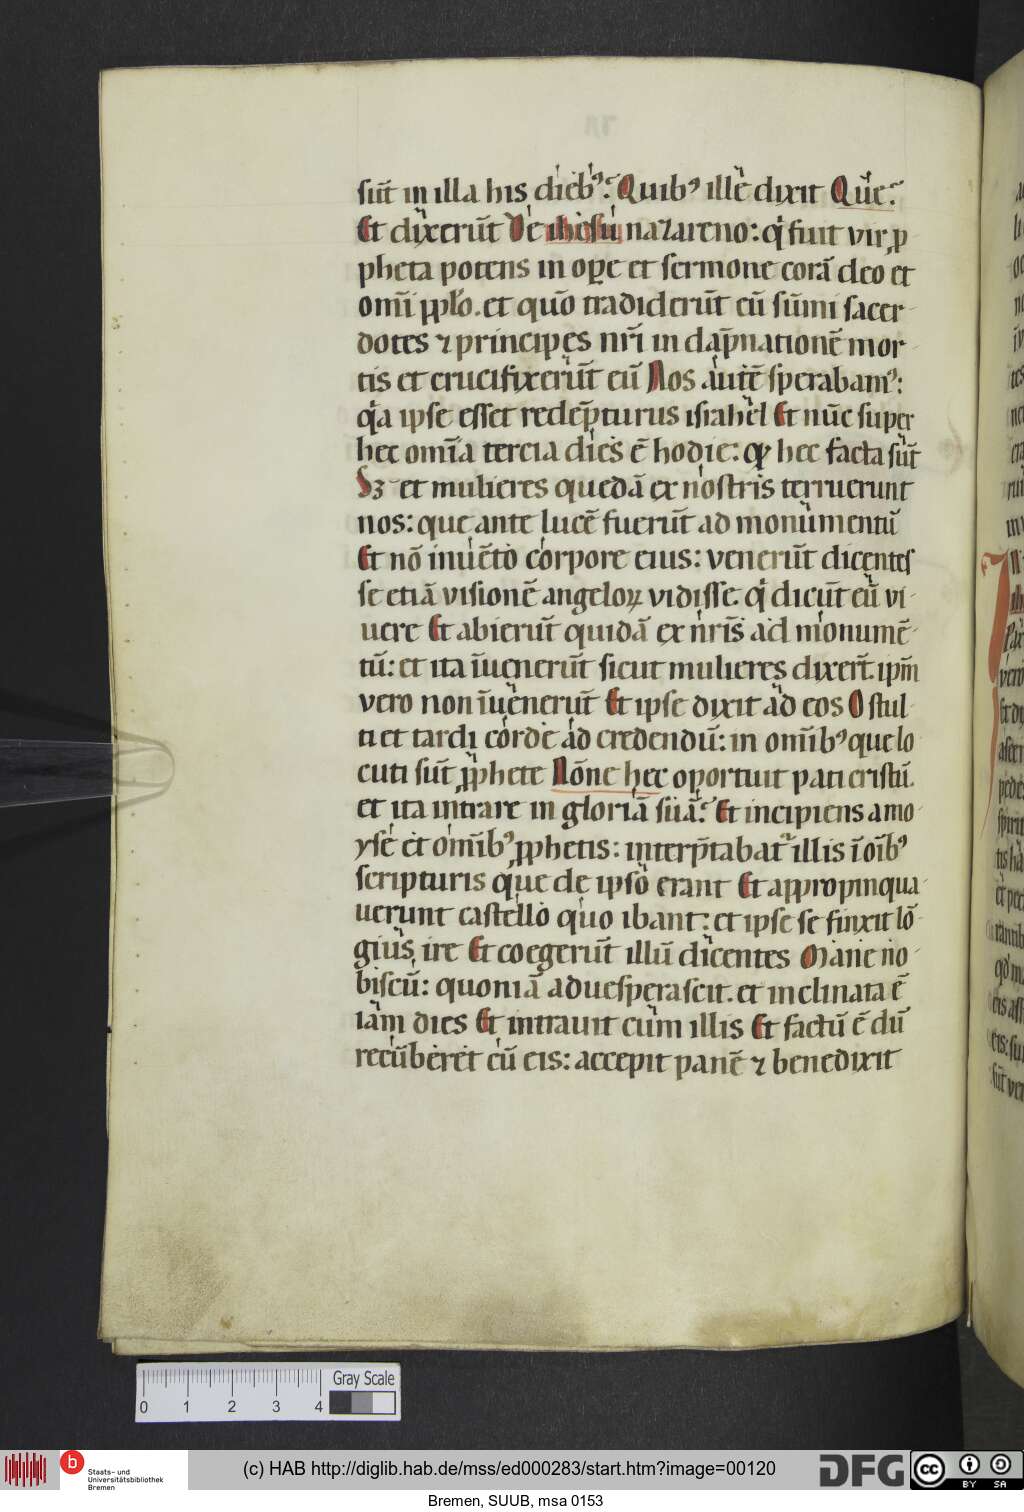 sūt in illa his dieb᷒? Quib᷒ ille dixit Que?
Et dixerūt De ihesu nazareno: q̇ fuit vir ꝓ
pheta potens in oꝑe et sermone corā deo et
om̄i ꝓp̄lo. et quō tradiderūt eū sūmi sacer
dotes ⁊ principes nr̄i in dap̄nationē mor
tis et crucifixerūt eū Nos autē sperabam᷒:
q̇a ipse esset redēpturus israhel Et nūc super
hec omīa tercia dies ē hodie: qꝫ hec facta sūt
Sꝫ et mulieres quedā ex nostris terruerunt
nos: que ante lucē fuerūt ad monumentū
Et nō inuēto corpore eius: venerūt dicentes
se etiā visionē angeloꝝ vidisse. q̇ dicūt eū vi
uere Et abierūt quidā ex nr̄is ad monumē
tū: et ita īuenerūt sicut mulieres dixert̄. ipm̄
vero non īuenerūt Et ipse dixit ad eos O stul
ti et tardi corde ad credendū: in omīb᷒ que lo
cuti sūt ꝓphete Nōne hec oportuit pati cristū.
et ita intrare in gloriā suā? Et incipiens a mo
yse et omīb᷒ ꝓphetis: interp̄tabat᷑ illis ī oīb᷒
scripturis que de ipso erant Et appropinqua
uerunt castello quo ibant: et ipse se finxit lō
gius ire Et coegerūt illū dicentes Mane no
biscū: quoniā aduesperascit. et inclinata ē
iam dies Et intrauit cum illis Et factū ē dū
recūberet cū eis: accepit panē ⁊ benedixit
0 1 2 3 4
Gray Scale
b
Staats- und
Universitätsbibliothek
Bremen
(c) HAB http://diglib.hab.de/mss/ed000283/start.htm?image=00120
DFG
cc BY SA
Bremen, SUUB, msa 0153